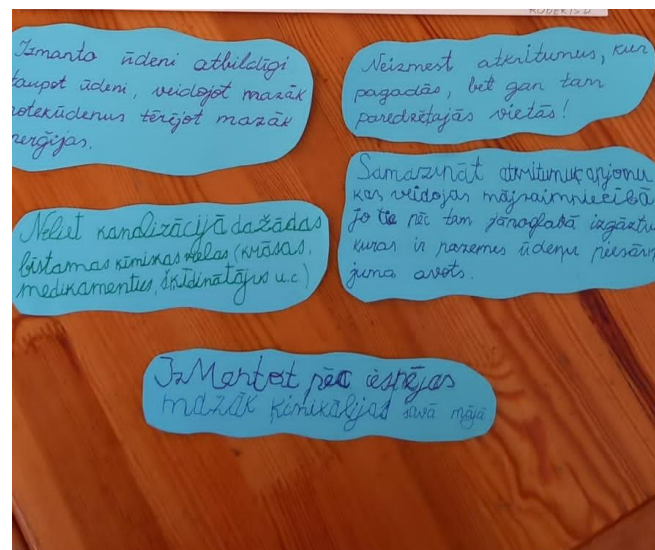 ROBERTS D
Izmanto ūdeni atbildīgi
taupot ūdeni, veidojot mazāk
notekūdenus tērējot mazāk
nerģijas.
Neizmest atkritumus, kur
pagadās, bet gan tam
paredzētajās vietās!
Neliet kanalizācijā dažādas
bīstamas ķīmiskas vielas (krāsas,
medikamentus, šķīdinātājus u.c)
Samazināt atkritumu apjomu
kas veidojas mājsaimniecībā
jo tie pēc tam jānoglabā izgāztu
kuras ir pazemes ūdeņu piesārņ
juma avots.
IzMantot pēc iespējas
mazāk ķimikālijas savā mājā